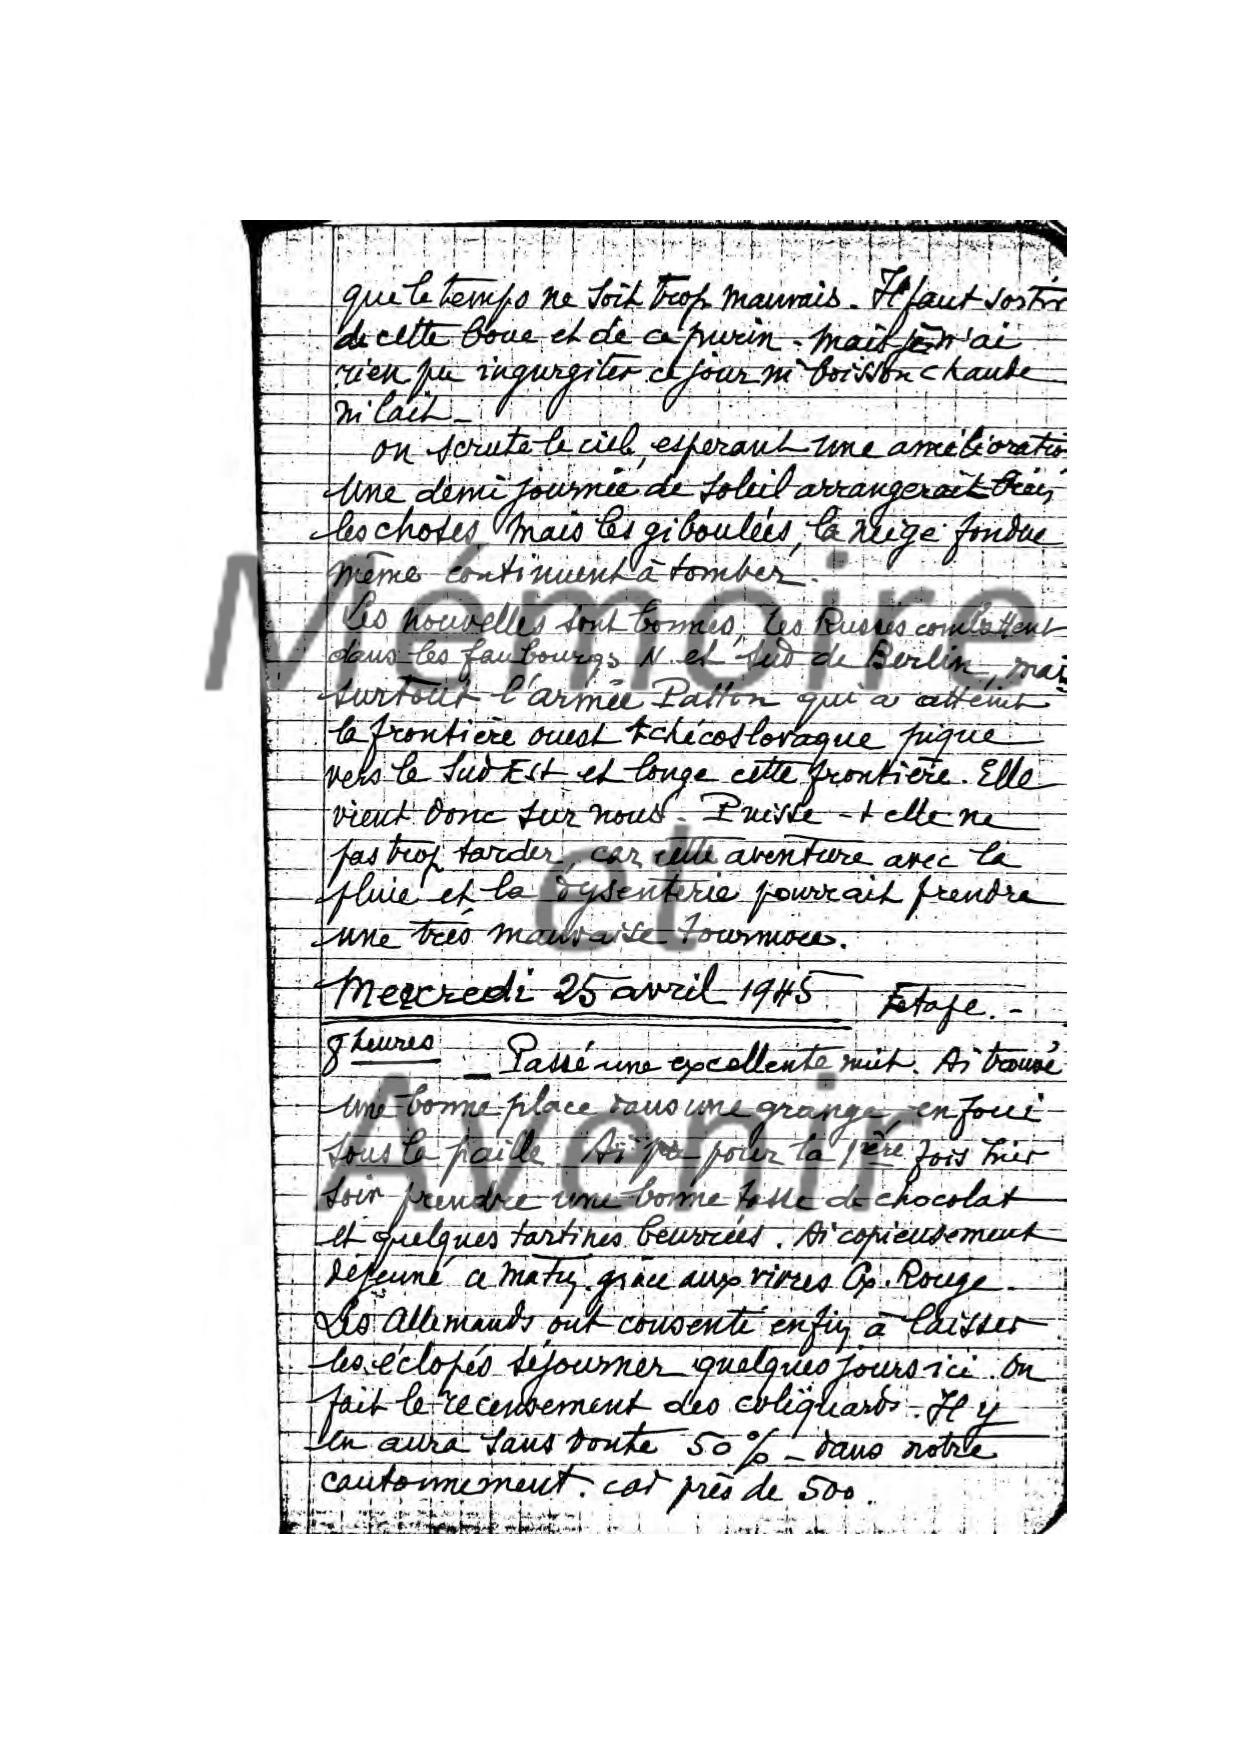 que le temps ne soit trop mauvais. Il faut sortir
de cette boue et de ce purin. Mais je n'ai
rien pu ingurgiter ce jour ni boisson chaude
ni lait _
on scrute le ciel, esperant une amélioratio
Une demi journée de soleil arrangerait bien
les choses. Mais les giboulées, la neige fondue
même continuent à tomber.
Les nouvelles sont bonnes, les Russes combattent
dans les faubourgs N. et Sud de Berlin, mais
surtout l'armée Patton qui a atteint
la frontière ouest tchécoslovaque pique
vers le Sud Est et longe cette frontière. Elle
vient donc sur nous. Puisse-t-elle ne
pas trop tarder, car cette aventure avec la
pluie et la dysenterie pourrait prendre
une très mauvaise tournure.
Mercredi 25 avril 1945 Etape. -
8 heures _ Passé une excellente nuit. Ai trouvé
une bonne place dans une grange, enfoui
sous la paille. Ai pu pour la 1ère fois hier
soir prendre une bonne tasse de chocolat
et quelques tartines beurrées. Ai copieusement
déjeuné ce matin grâce aux vivres Cx. Rouge.
Les Allemands ont consenti enfin à laisser
les éclopés séjourner quelques jours ici. on
fait le recensement des coliquards. Il y
en aura sans doute 50% _ dans notre
cantonnement. car près de 500.
Mémoire
et
Avenir